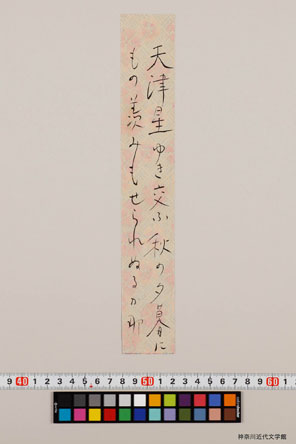 天津星ゆき交ふ秋の夕暮に
もの羨みもせられぬるかな
9 40 1 2 3 4 5 6 7 8 9 50 1 2 3 4 5 6 7 8 9 60 1
神奈川近代文学館